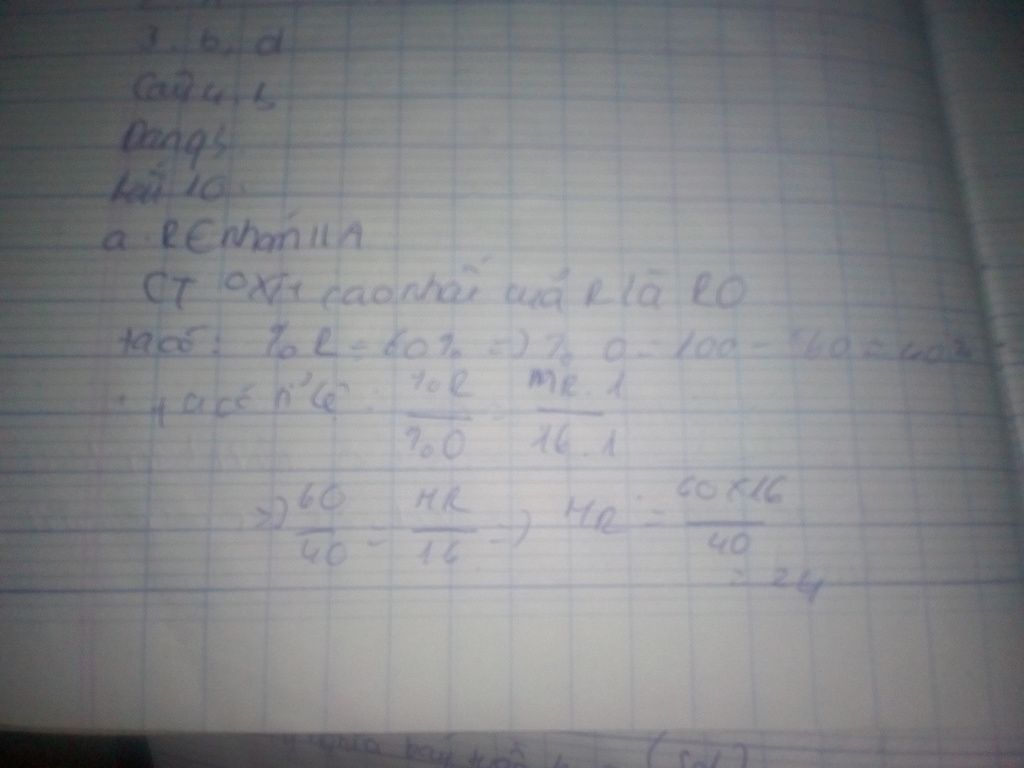 3. b, d
Câu 4. b
Dạng
Bài 10
a. R ∈ nhóm IIA
CT oxit cao nhất của R là RO
ta có: %R = 60% => %O = 100 - 60 = 40%
ta có tỉ lệ: %R / %O = MR.1 / 16.1
=> 60/40 = MR/16 => MR = 60x16/40
= 24